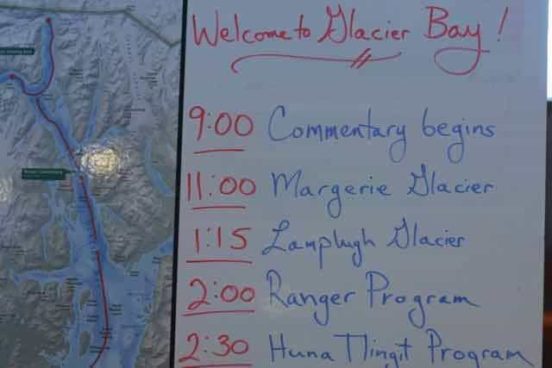 Welcome to Glacier Bay!
9:00 Commentary begins
11:00 Margerie Glacier
1:15 Lamplugh Glacier
2:00 Ranger Program
2:30 Huna Tlingit Program